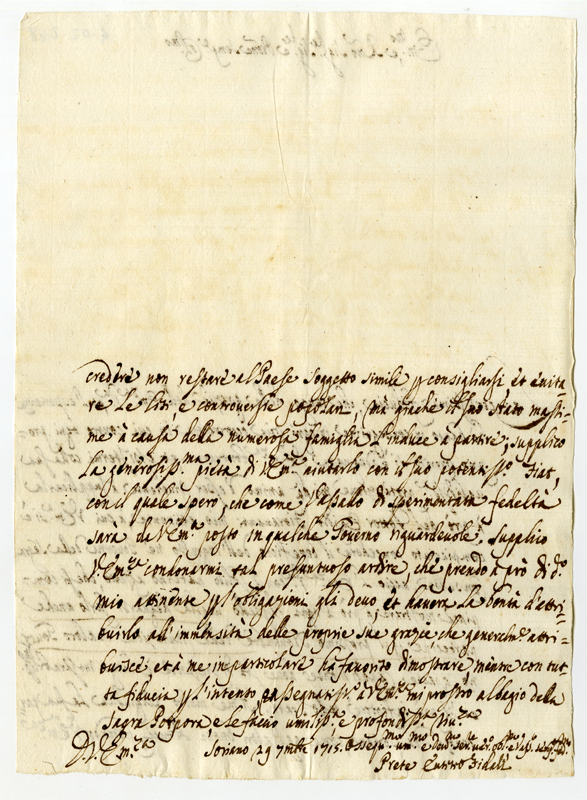 credere non restare al Paese soggetto simile p consigliarsi, et evita
re le liti e controversie popolari, mà perche il suo stato massi=
me à causa della numerosa famiglia l'induce a partire, supplico
la generosiss.ma pietà di V.Em.za aiutarlo con il suo potentiss.o Fiat,
con il quale spero, che come Vassallo di sperimentata fedeltà
sarà da V.Em.za posto in qualche Governo riguardevole, supplico
V.Em.za condonarmi tal presuntuoso ardire, che prendo à prò di d.o
mio attinente p l'obligazioni gli devo, et haverà la bontà d'attri=
buirlo all'immensità delle proprie sue grazie, che generalm.te attri=
buisce et à me in particolare ha favorito dimostrare, mentre con tut=
ta fiducia p l'intento rassegnarss.o à V.Em.za mi prostro al bagio della
Sagra Porpora, e le faccio umiliss.a, e profondiss.a riv.za
D.V.Em.za
Soriano 29 7mbre 1715.
Prete